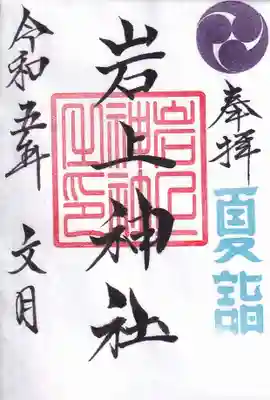 奉拝
夏詣
岩上神社
岩上神社之印
令和五年
文月